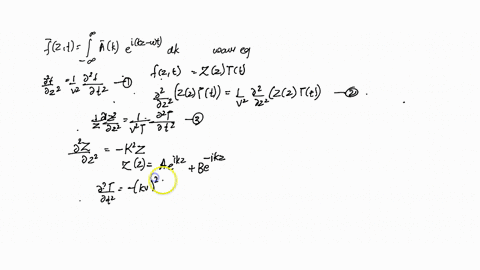 f̃(z,t) = ∫_{-∞}^{∞} Ã(k) e^{i(kz-wt)} dk wave eq
f(z,t) = Z(z)T(t)
∂f/∂z² = 1/v² ∂²f/∂t² —①
∂²/∂z² (Z(z)T(t)) = 1/v² ∂²/∂z² (Z(z)T(t)) —②.
1/Z ∂Z²/∂z² = 1/v²T ∂²T/∂t² —③
∂²Z/∂z² = -K²Z
Z(z) = Ae^{ikz} + Be^{-ikz}
∂²T/∂t² = -(kv)².